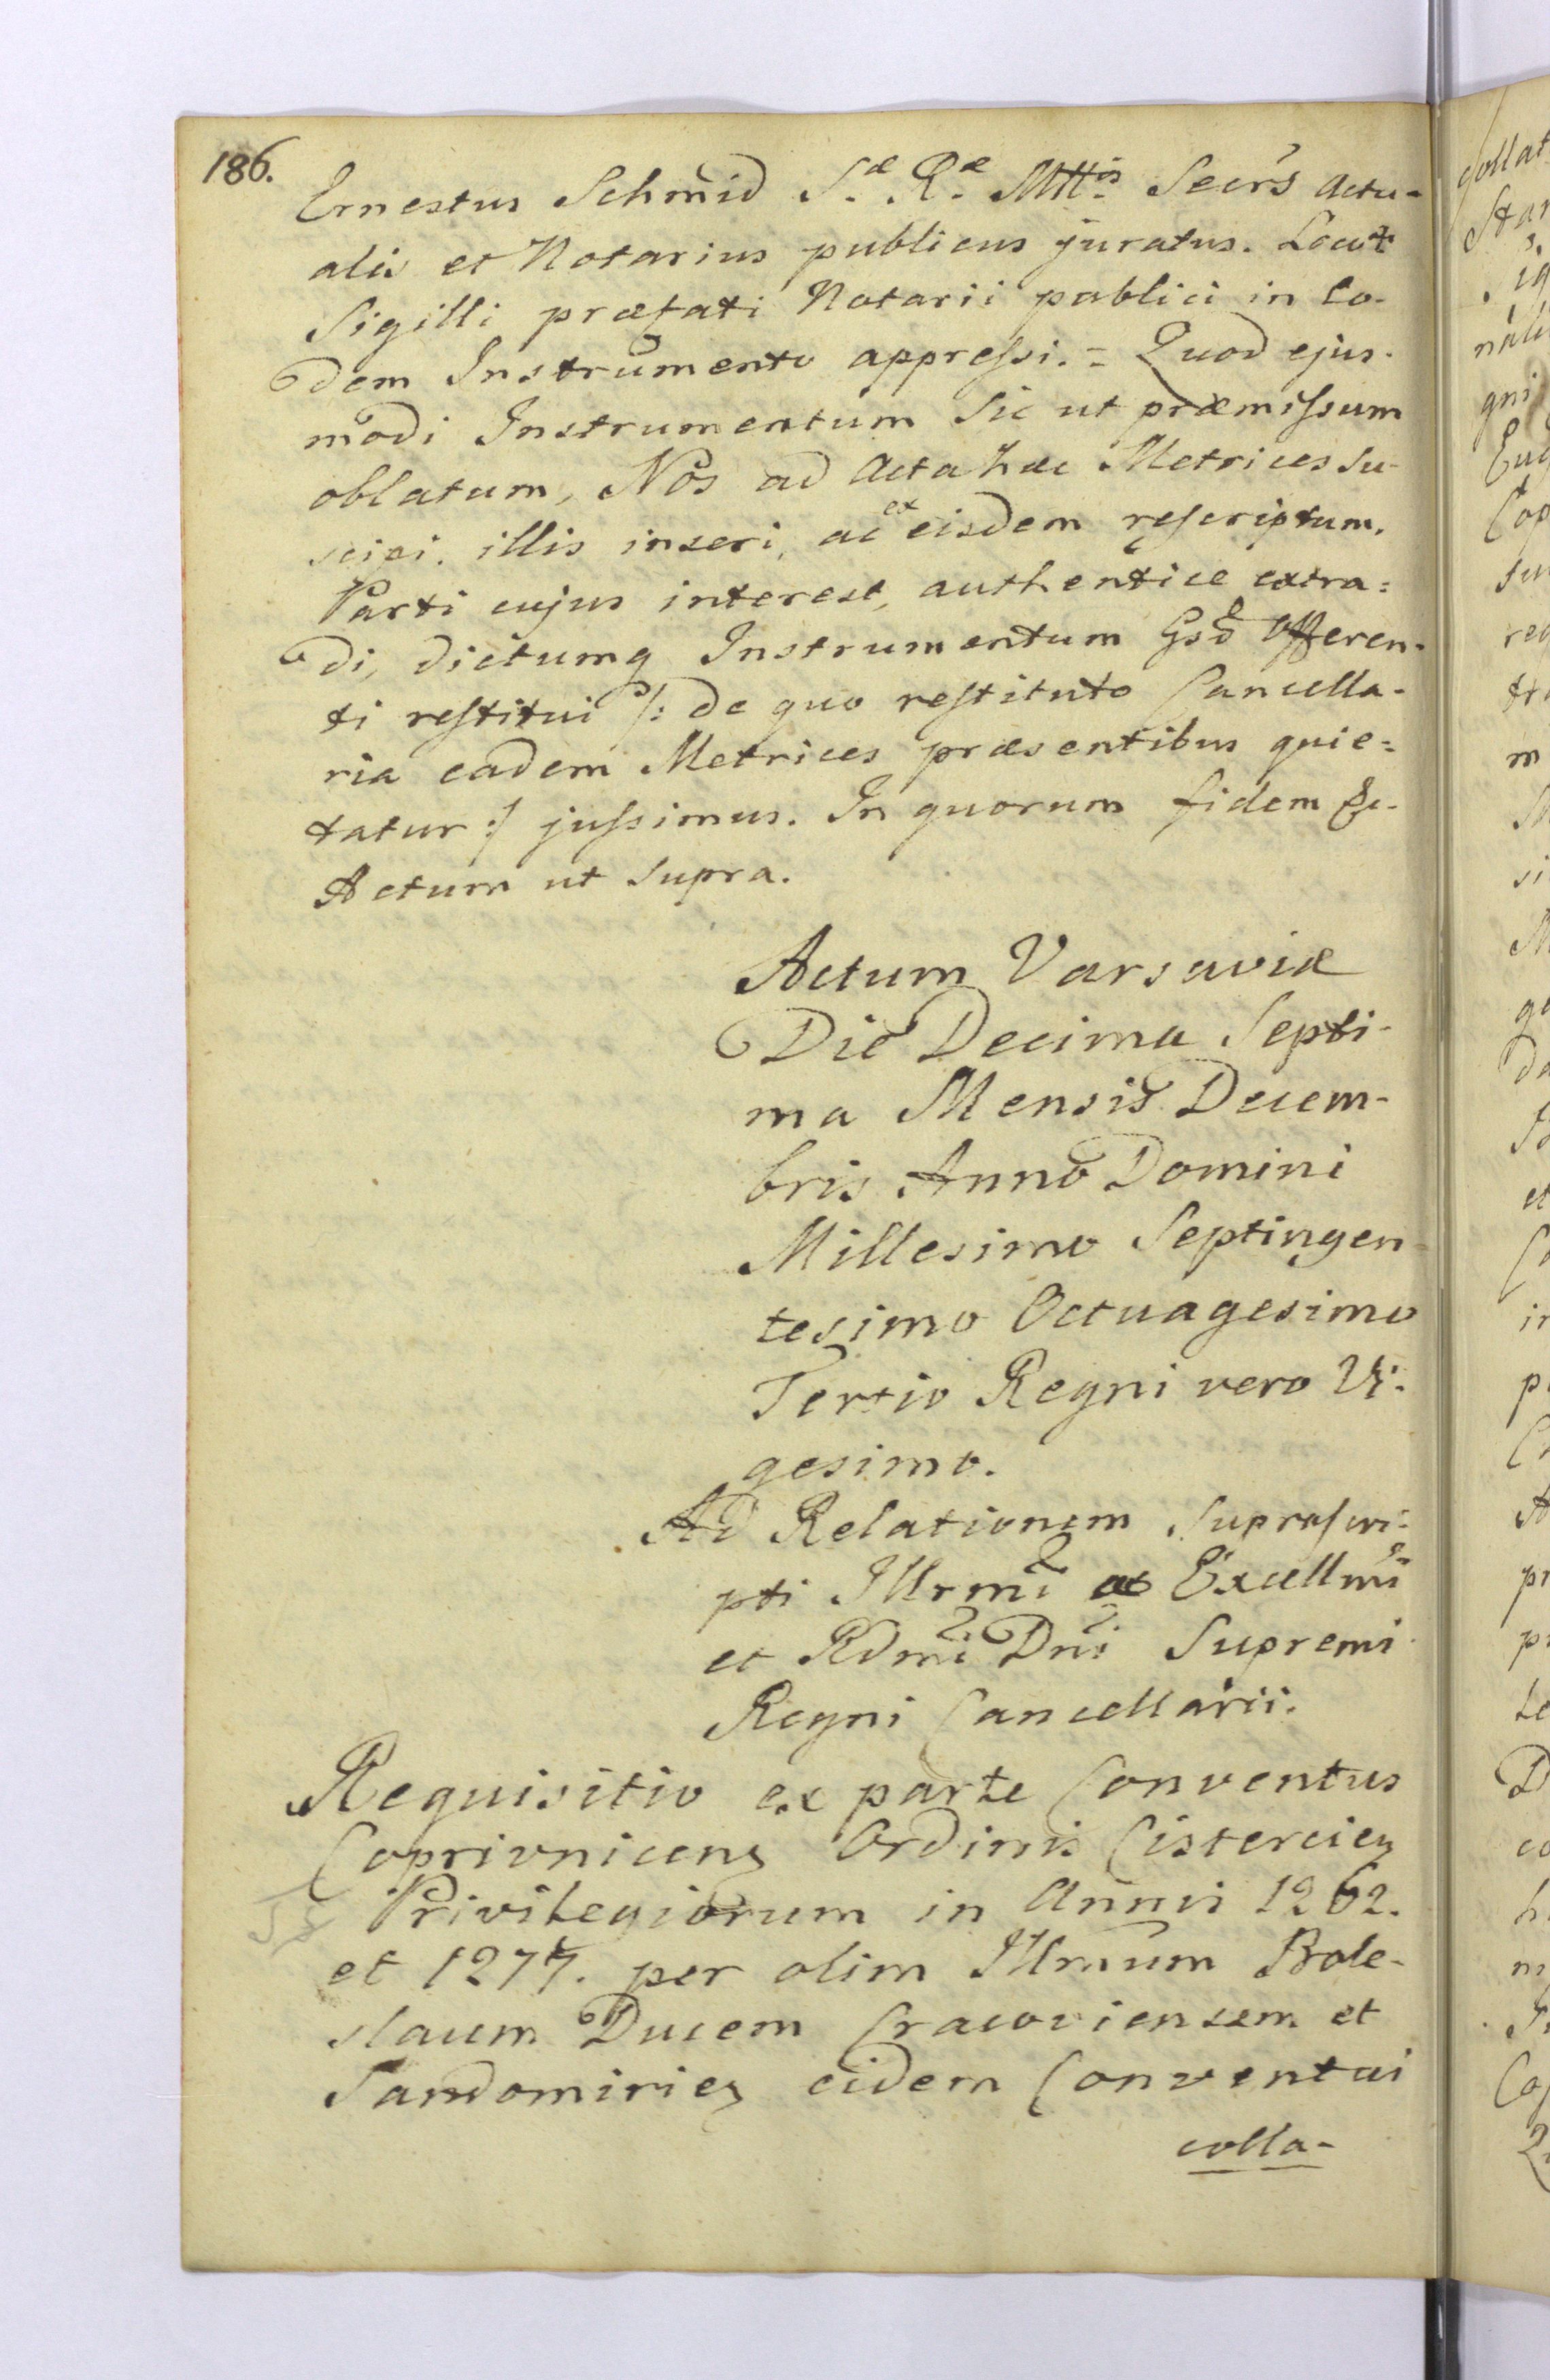 186.
Ernestus Schmid Sæ Ræ Mttis Secrs Actu-
alis et Notarius publicus juratus. Locus
Sigilli præfati Notarii publici in eo-
dem Instrumento appressi. = Quod ejus-
modi Instrumentum Sic ut præmissum
oblatum, Nos ad Acta hæc Metrices su-
scipi, illis inseri, ac ex eisdem rescriptum,
Parti cujus interest, authentice extra-
di, dictumq Instrumentum Gsd Offeren-
ti restitui /: de quo restituto Cancella-
ria eadem Metrices præsentibus quie-
tatur :/ jussimus. In quorum fidem &c-
Actum ut supra.
Actum Varsaviæ
Die Decima Septi-
ma Mensis Decem-
bris Anno Domini
Millesimo Septingen-
tesimo Octuagesimo
Tertio Regni vero Vi-
gesimo.
Ad Relationem suprascri-
pti Illrmi ac Excellmi
et Rdmi Dni Supremi
Regni Cancellarii.
Requisitio ex parte Conventus
Coprivnicens Ordinis Cistercien
Privilegiorum in Annis 1262.
et 1277. per olim Illmum Bole-
slaum Ducem Cracoviensem et
Sandomirien eidem Conventui
colla-